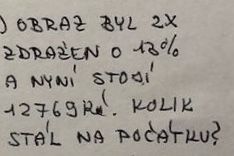 ) OBRAZ BYL 2X
ZDRAŽEN O 13%
A NYNÍ STOJÍ
12769Kč. KOLIK
STÁL NA POČÁTKU?